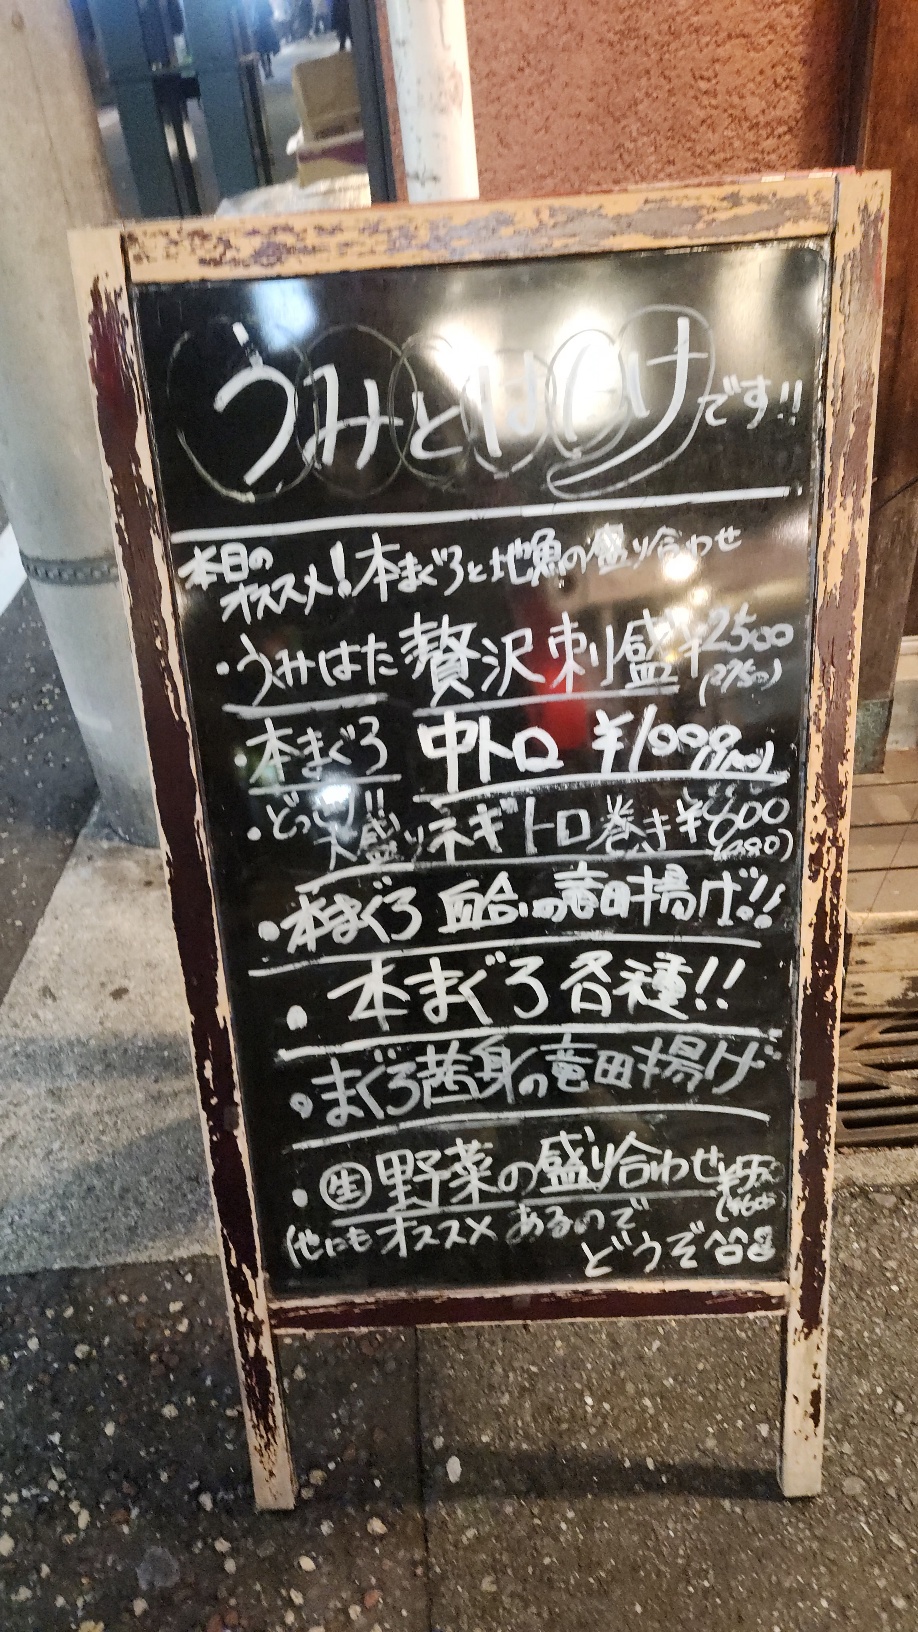 うみとはたけです!!
本日のオススメ!本まぐろと地魚の盛り合わせ
・うみはた贅沢刺盛 ¥2500
(2750)
・本まぐろ 中トロ ¥1000(1100)
・どっさり!!
大盛りネギトロ巻き ¥800
(880)
・本まぐろ血合いの竜田揚げ!!
・本まぐろ各種!!
・まぐろ 身の竜田揚げ
・㊤野菜の盛り合わせ
他にもオススメあるので
どうぞ